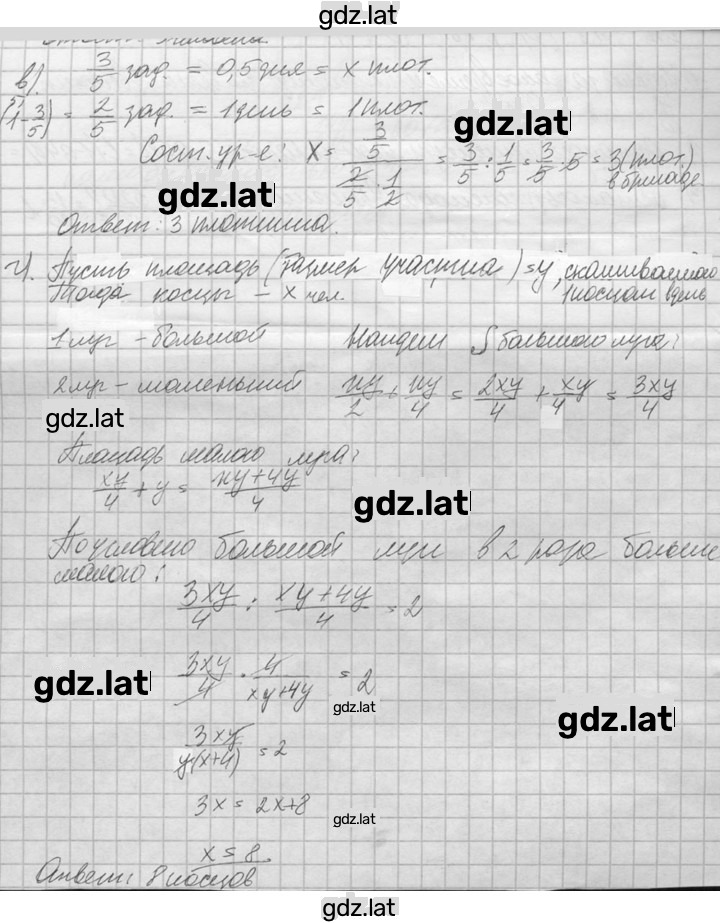 gdz.lat
в). 3/5 зад. = 0,5 дня = x плот.
(1 - 3/5) = 2/5 зад. = 1 день = 1 плот.
gdz.lat
Сост. ур-е: x = (3/5)/(2/5 · 1/2) = 3/5 : 1/5 = 3/5 · 5 = 3 (плот.)
в бригаде.
gdz.lat
Ответ: 3 плотника.
г). Пусть площадь (размер участка) = y, скашиваемого
Тогда косцы – x чел. 1 косцом в день
1 луг – большой Найдем S большого луга:
2 луг – маленький xy/2 + xy/4 = 2xy/4 + xy/4 = 3xy/4
gdz.lat
Площадь малого луга:
xy/4 + y = xy+4y/4
gdz.lat
По условию большой луг в 2 раза больше
малого:
3xy/4 : xy+4y/4 = 2
gdz.lat
3xy/4 · 4/xy+4y = 2
gdz.lat
gdz.lat
3xy/y(x+4) = 2
3x = 2x+8
gdz.lat
x = 8.
Ответ: 8 косцов
gdz.lat